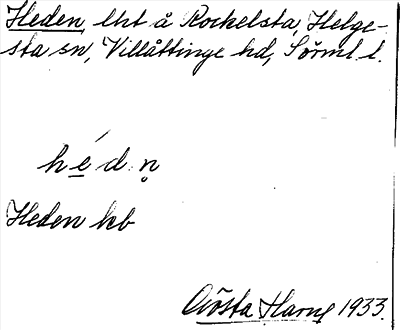 Heden, lht å Rockelsta, Helge-
sta sn, Villåttinge hd, Sörml. l.
h é d n̥
Heden kb
Gösta Harne 1933.